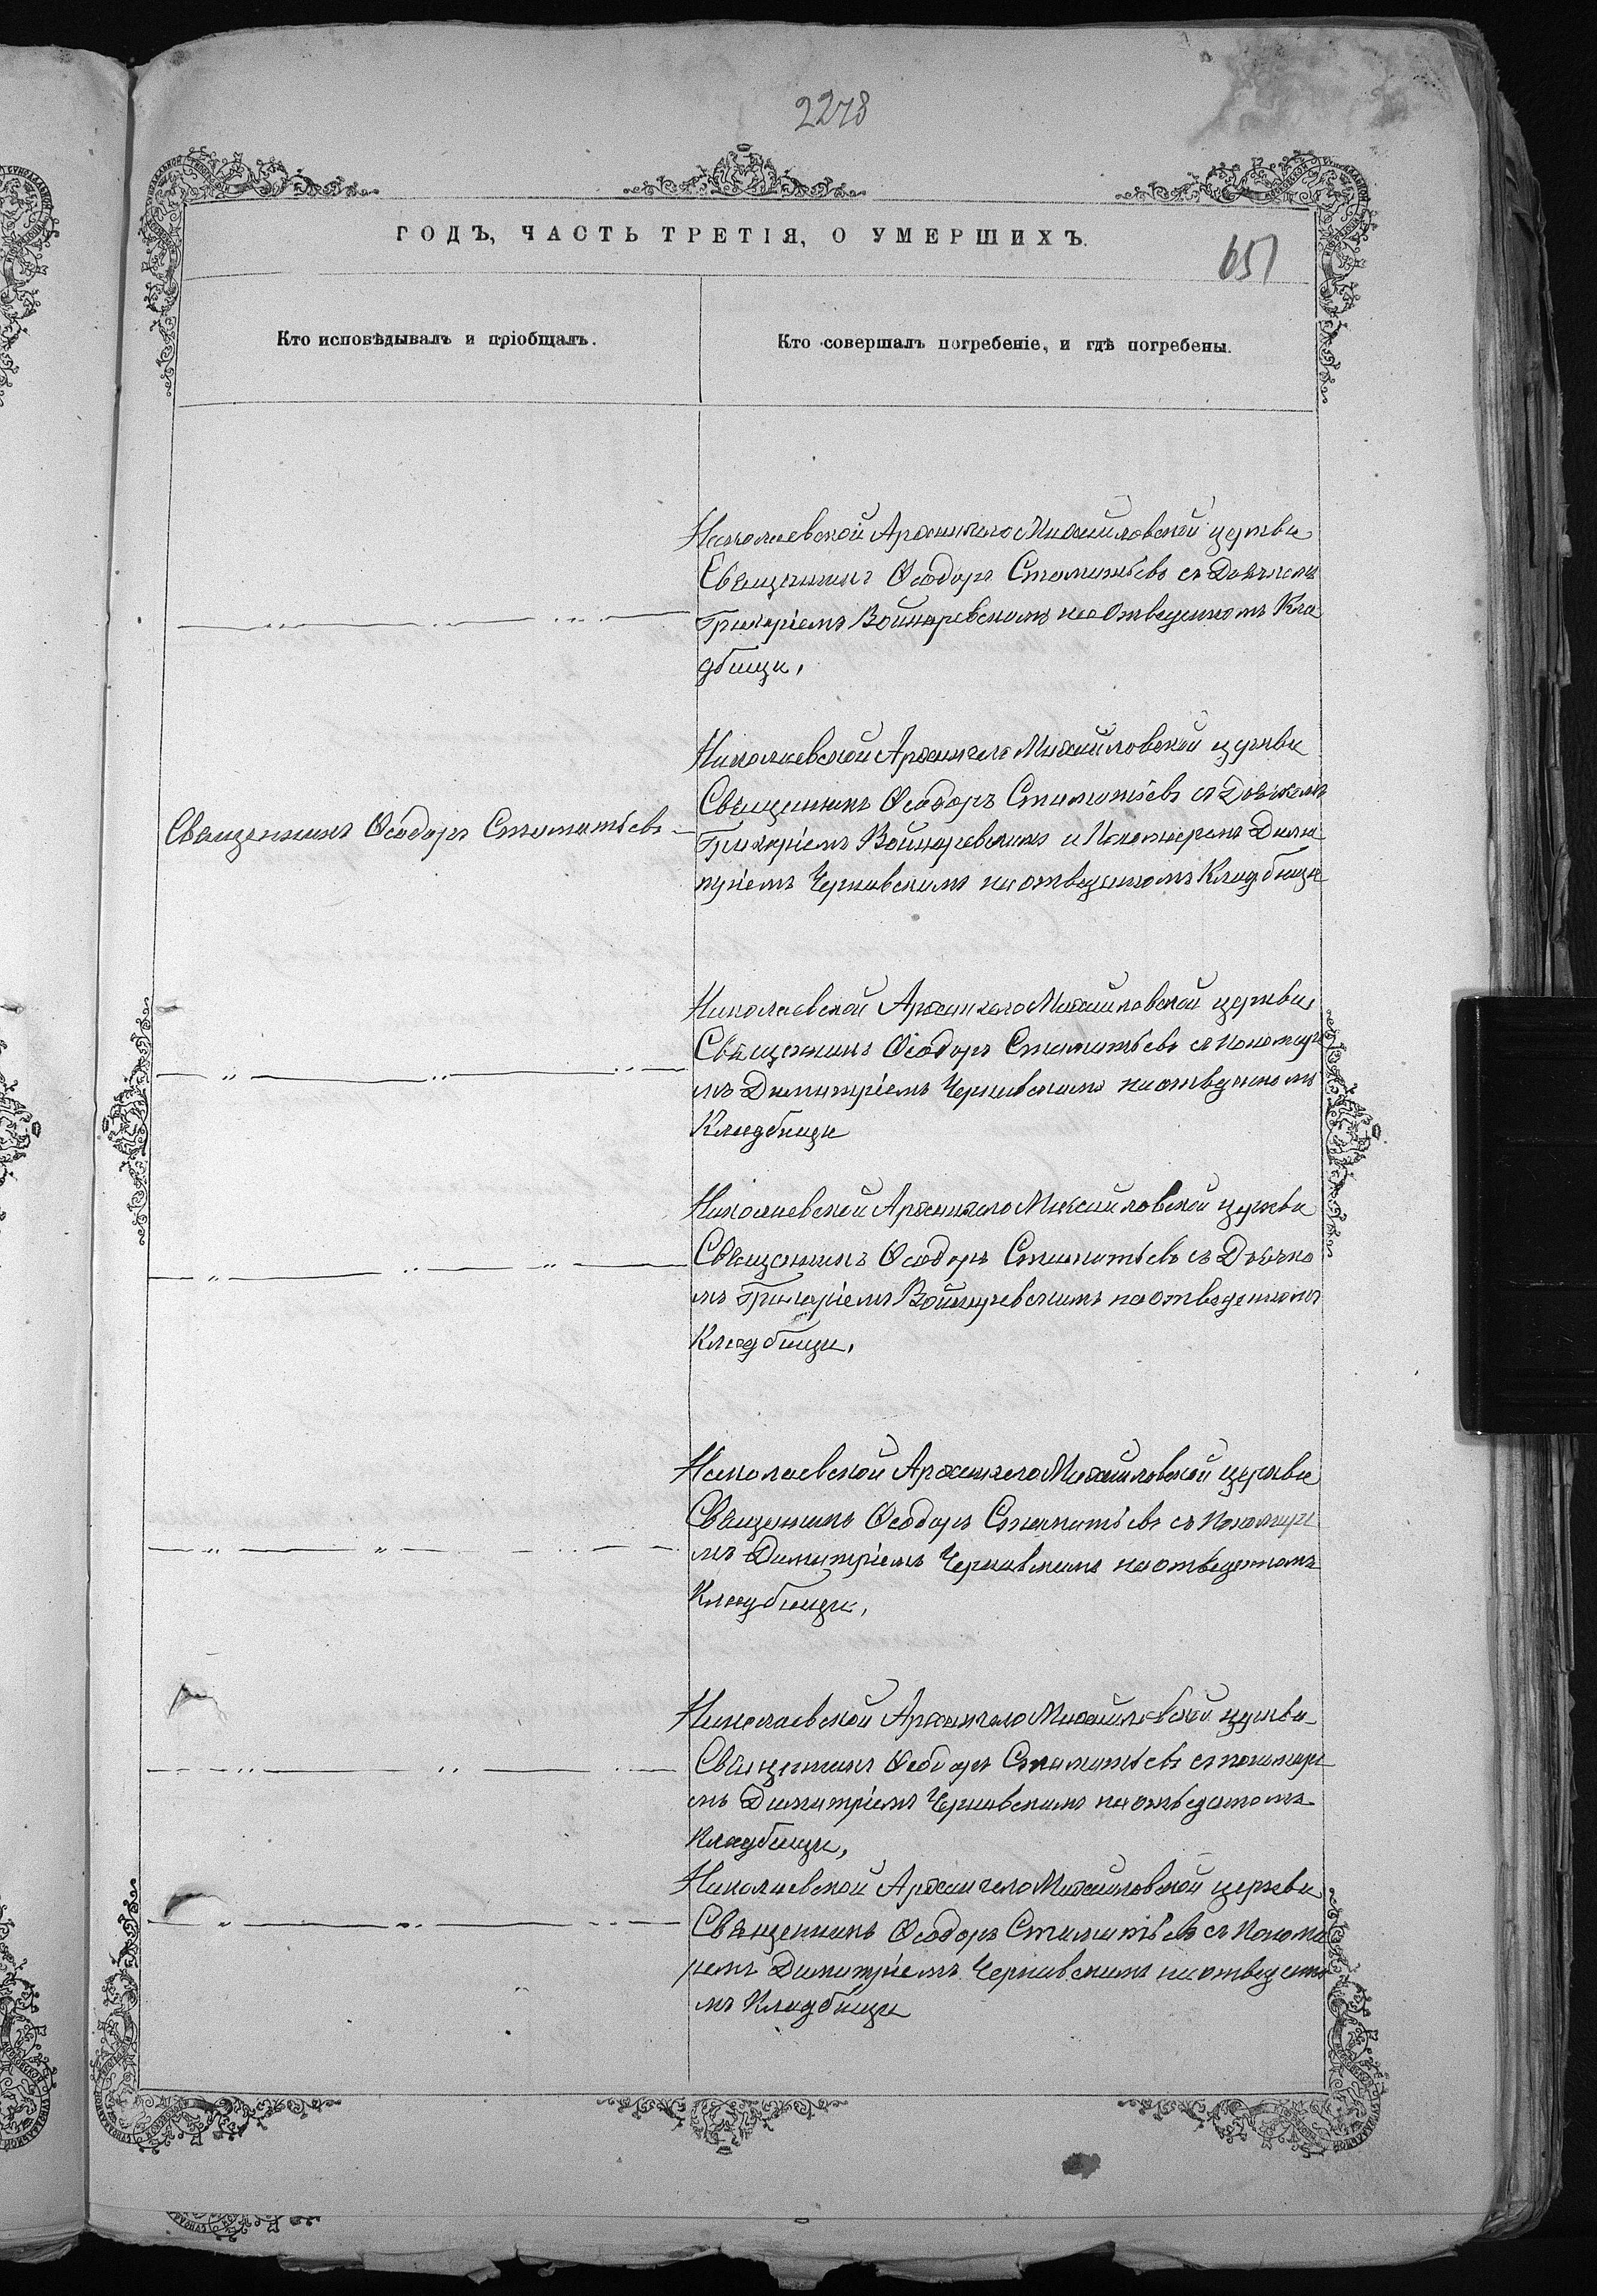 2278
ГОДЪ, ЧАСТЬ ТРЕТІЯ, О УМЕРШИХЪ.
651
Кто исповѣдывалъ и пріобщалъ.
Кто совершалъ погребеніе, и гдѣ погребены.
Николаевской Архангело Михайловской церкви
Священникъ Ѳеодоръ Стаматьевъ съ Дьячкомъ
Григоріемъ Войнаревскимъ на отведенномъ Кла
дбищи,
Николаевской Архангело Михайловской церкви
Священникъ Ѳеодоръ Стаматьевъ съ Дьячкомъ
Священникъ Ѳеодоръ Стаматьевъ
Григоріемъ Войнаревскимъ и Пономаремъ Дими
тріемъ Чернявскимъ на отведенномъ Кладбищи
Николаевской Архангело Михайловской церкви
Священникъ Ѳеодоръ Стаматьевъ съ Пономаре
мъ Димитріемъ Чернявскимъ на отведенномъ
Кладбищи
Николаевской Архангело Михайловской церкви
Священникъ Ѳеодоръ Стаматьевъ съ Дьячко
мъ Григоріемъ Войнаревскимъ на отведенномъ
Кладбищи,
Николаевской Архангело Михайловской церкви
Священникъ Ѳеодоръ Стаматьевъ съ Пономаре
мъ Димитріемъ Чернявскимъ на отведенномъ
Кладбищи,
Николаевской Архангело Михайловской церкви
Священникъ Ѳеодоръ Стаматьевъ съ пономаре
мъ Димитріемъ Чернявскимъ на отведенномъ
Кладбищи,
Николаевской Архангело Михайловской церкви
Священникъ Ѳеодоръ Стаматьевъ съ Понома
ремъ Димитріемъ Чернявскимъ на отведенно
мъ Кладбищи